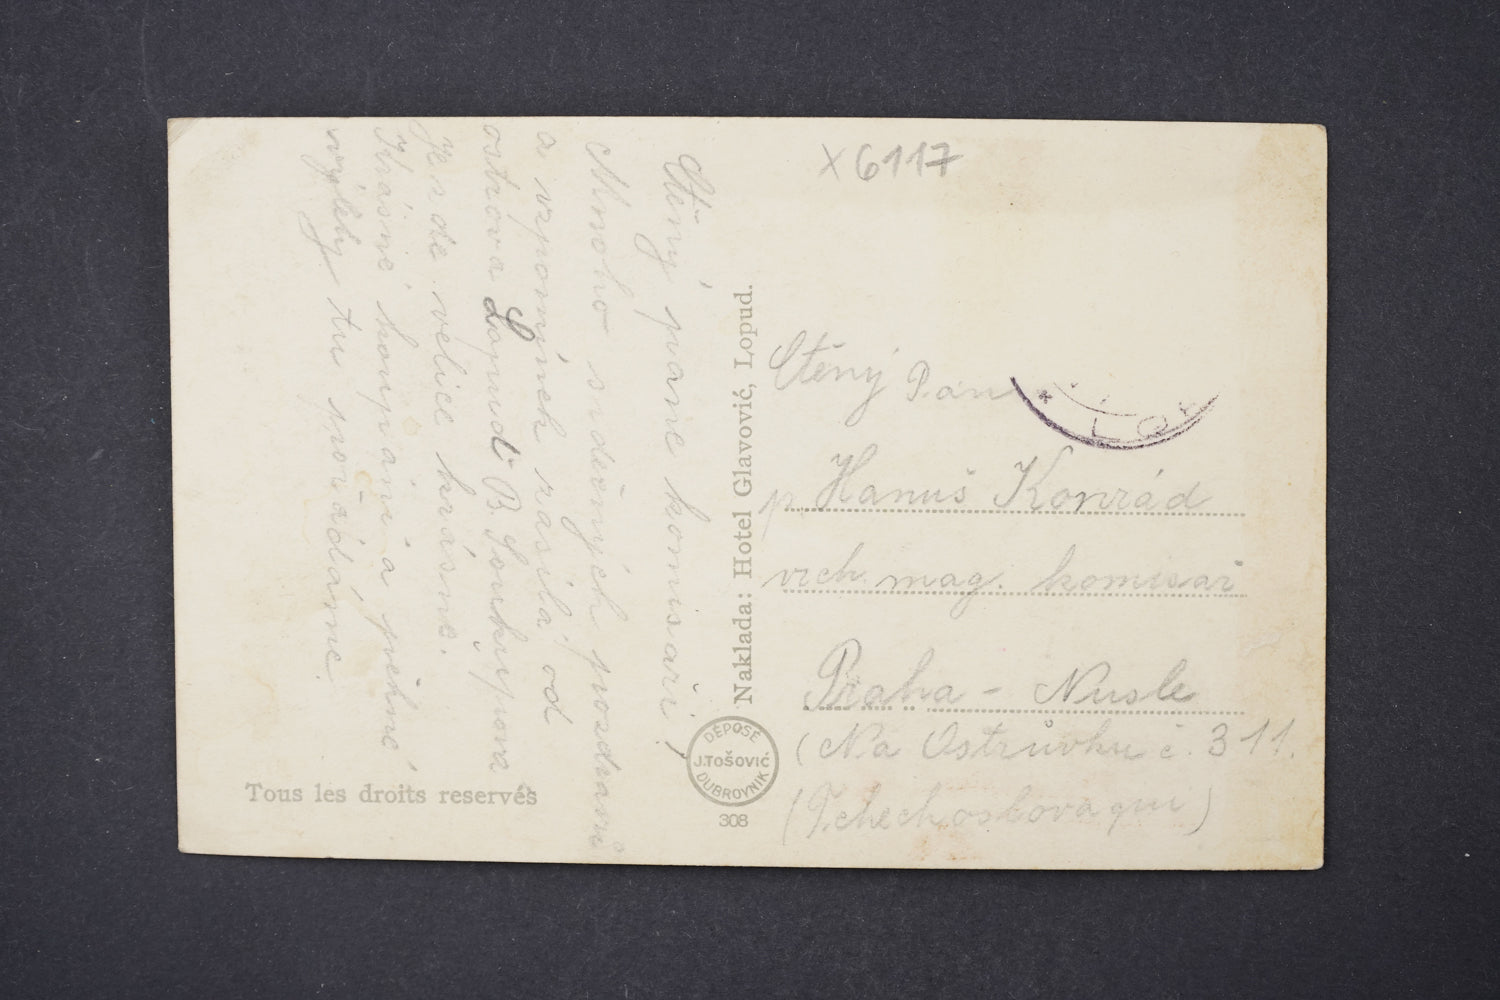 x 6117
Ctěný pane komisaři!
Mnoho srdečných pozdravů
a vzpomínek zasílá od
ostrova Lopud B.
Je zde velice krásně.
Krásné koupání a pěkné
výlety tu pořádáme.
Tous les droits reservés
Naklada: Hotel Glavović, Lopud.
DÉPOSÉ
J. TOŠOVIĆ
DUBROVNIK
308
Ctěný Pán
p. Hanuš Konrád
vrch. mag. komisař
Praha - Nusle
(Na Ostrůvku č. 311.
(Tchechoslovaqui)